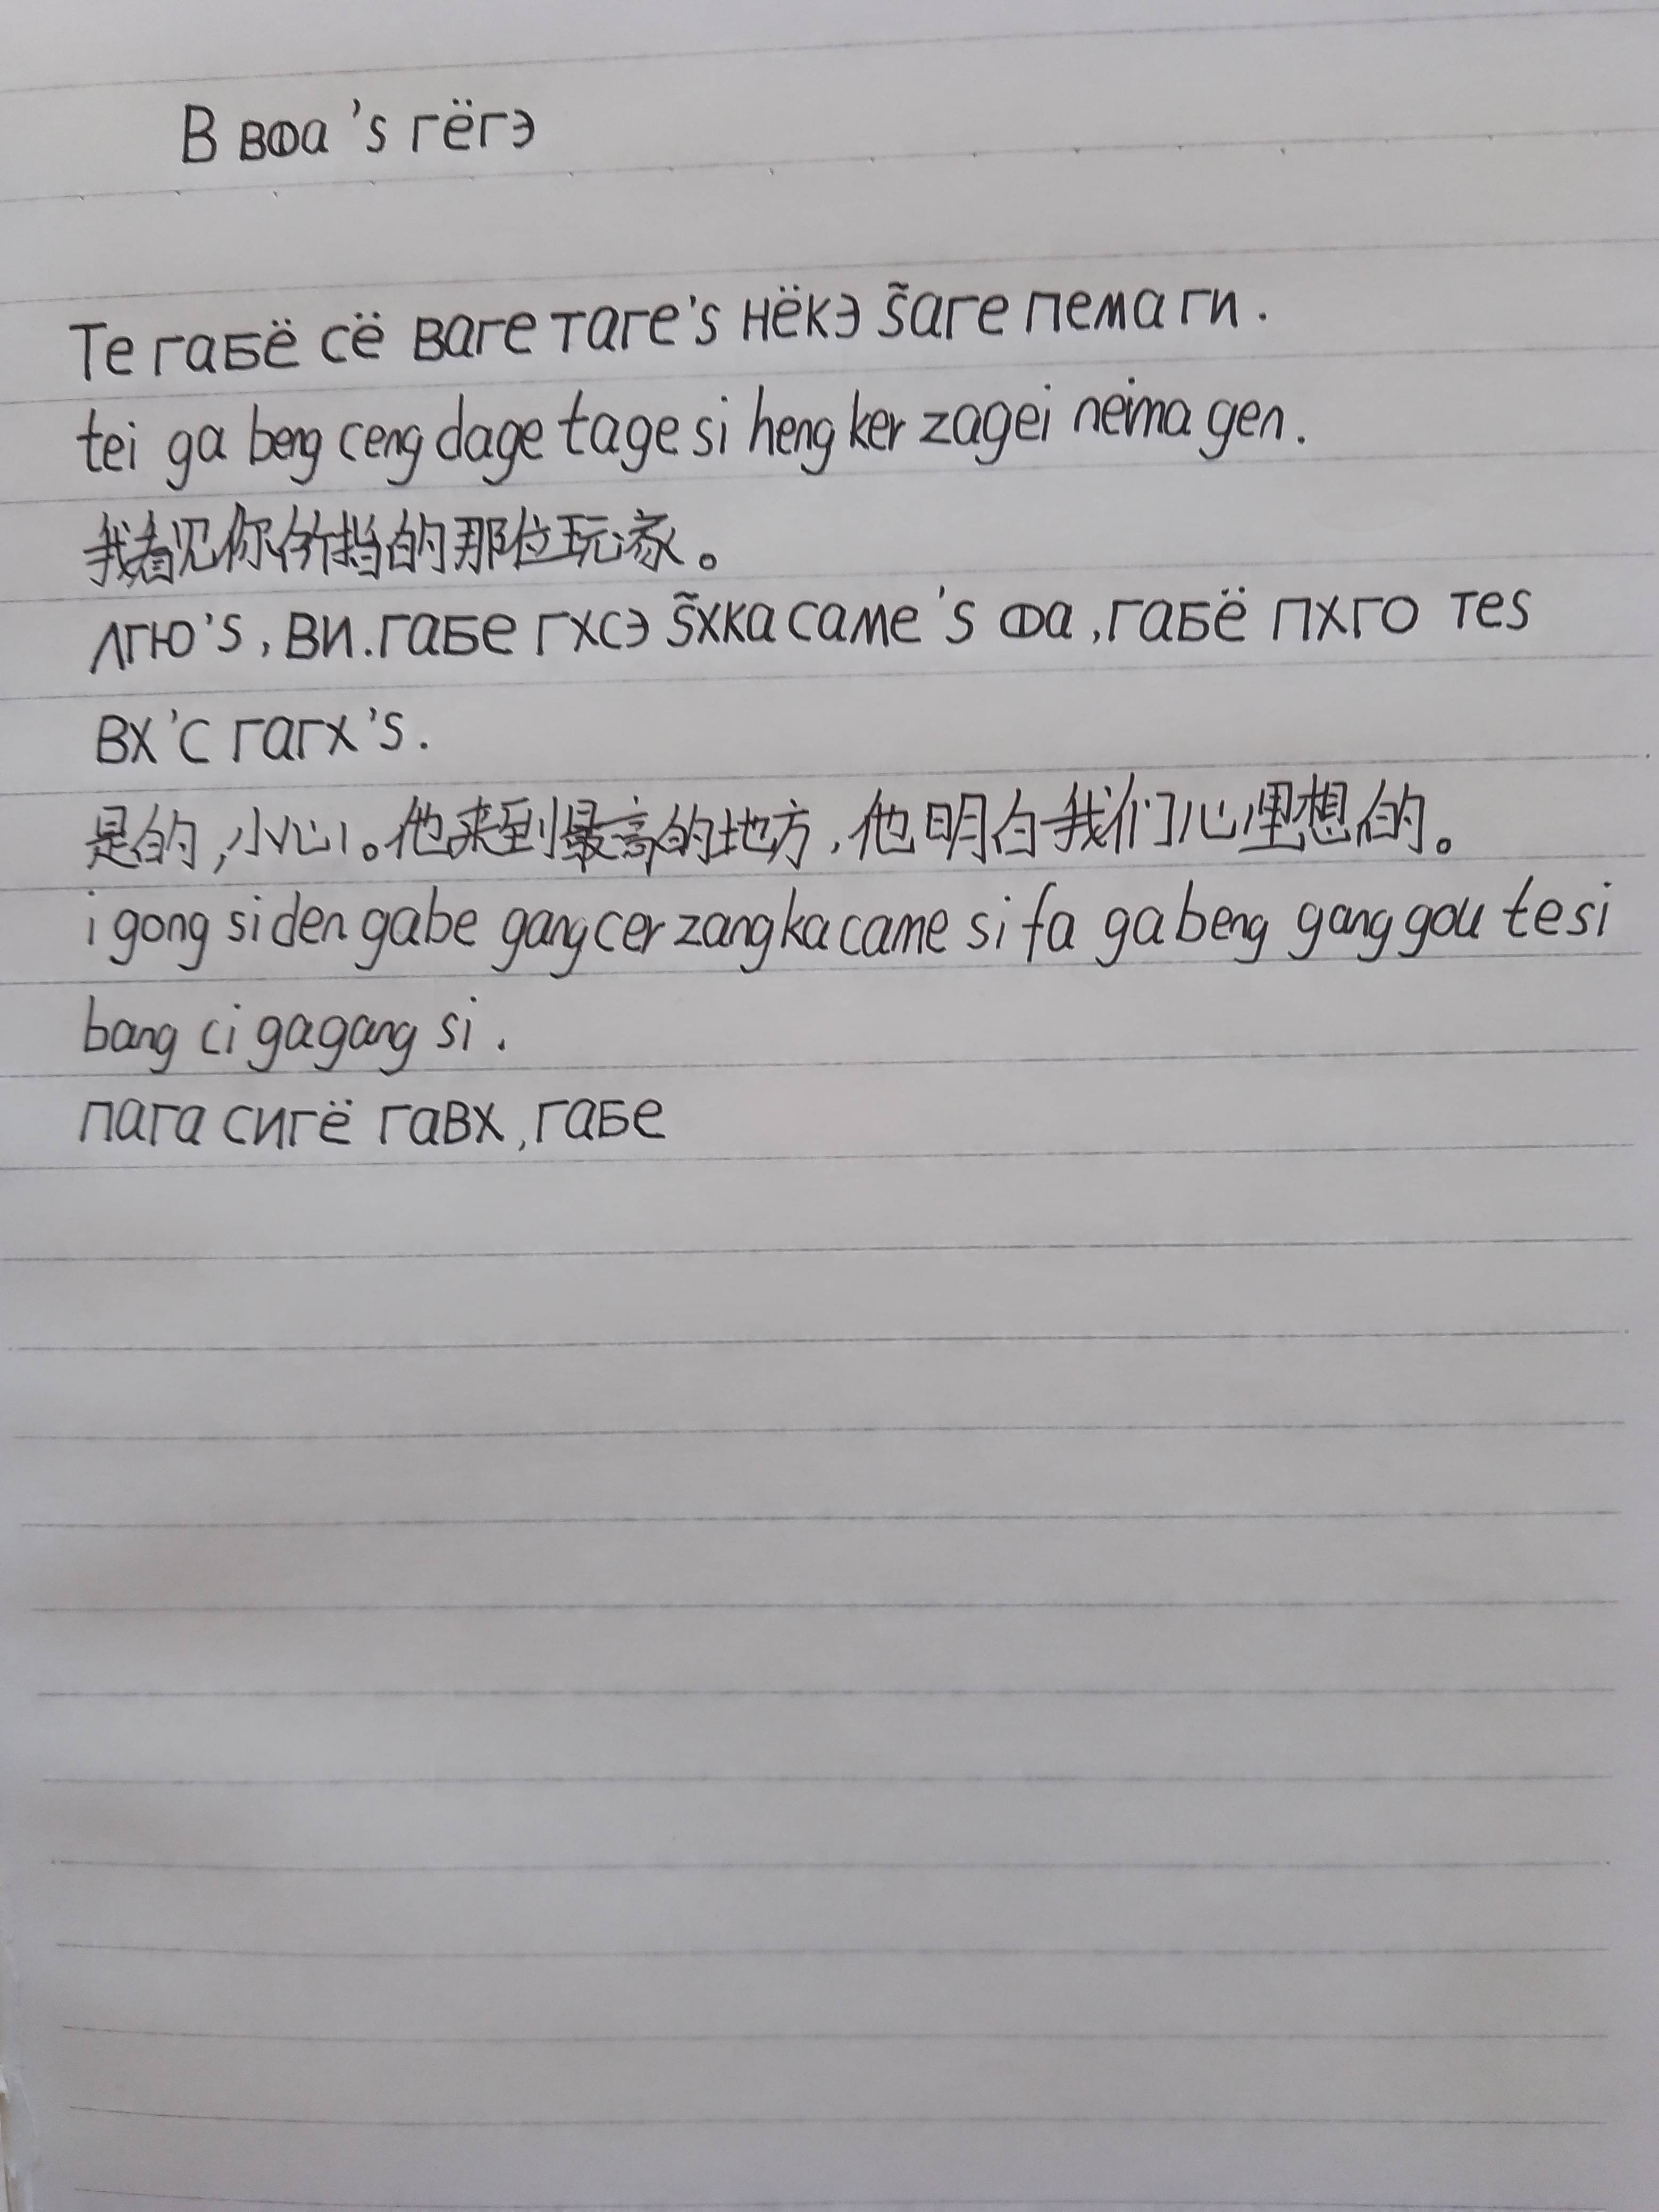 В вФа 's гёгэ
Те габё сё ваге таге's нёкэ s̃аге пема ги.
tei ga beng ceng dage tage si heng ker zagei neima gen.
我看见你所指的那位玩家。
лгю's, ви. габе гхсэ s̃хка саме 's Фа, габё пхго теs
вх 'с гагх 's.
是的,小心。他来到最高的地方,他明白我们心里想的。
i gong si den gabe gang cer zang ka came si fa ga beng gang gou te si
bang ci gagang si.
пага сигё гавх, габе